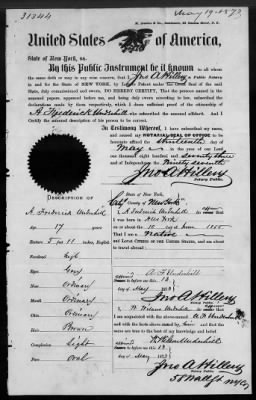 31344
May 19. 1873
United States of America,
State of New York, ss.
By this Public Instrument be it known
to all whom the same doth or may in any wise concern, that I, Jno A Hillery, a Public Notary
in and for the State of NEW YORK, by Letters Patent under the Great Seal of the said
State, duly commissioned and sworn, DO HEREBY CERTIFY, That the persons named in the
annexed papers, and being duly sworn according to law, subscribed the
declarations made by them respectively, which I deem sufficient proof of the citizenship of
A Frederick Underhill
Certify the annexed description of his person to be correct.
In Testimony Whereof, I have subscribed my name, and
caused my NOTARIAL SEAL OF OFFICE to be
hereunto affixed, the thirteenth day of
May in the year of our Lord
one thousand eight hundred and seventy three
and of Independency the Ninety seventh
Jno A Hillery
Notary Public.
DESCRIPTION OF
A Frederick Underhill
Age, 17 years,
Stature, 5 feet 11 inches, English,
Forehead, high
Eyes, Grey
Nose, Ordinary
Mouth, Ordinary
Chin, Ordinary
Hair, Brown
Complexion, Light
Face, Oval
City & County of New York ss.
I, A Frederick Underhill do swear that
I was born in New York
on or about 10 day of June 1855
that I am a native
and LOYAL CITIZEN of the UNITED STATES, and am about to travel abroad.
A F Underhill
13
day of May 1873
Jno A Hillery
Notary Public.
I, W Wilson Underhill do swear that
I am acquainted with the above named A F Underhill
and with the facts above stated by him and that the same
are true to the best of my knowledge and belief.
W Wilson Underhill
13
day of May 1873
Jno A Hillery
Notary Public.
58 Wall St NYCity